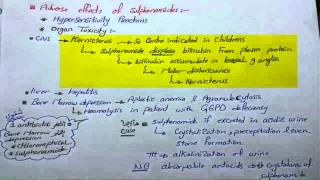 Adverse effects of sulphonamides :-
→ Hypersensitivity Reactions
→ Organ Toxicity :-
CNS → Kernicterus → So Contra indicated in Childrens
→ Sulphonamide displace bilirubin from plasma protein
→ bilirubin accumulate in basal ganglia
→ Motor disturbance
→ Kernicterus
→ liver → hepatitis
→ Bone Marrow depression → Aplastic anemia & Agranulocytosis
→ Haemolysis in patient with G6PD deficiency
2 antibiotic
Bone Marrow
depression
→ Chloramphenicol
→ sulphonamide
case
→ sulphonamide if excreted in acidic urine
→ Crystallization, precipitation & even
stone formation
TTT → alkalinization of urine
N.B